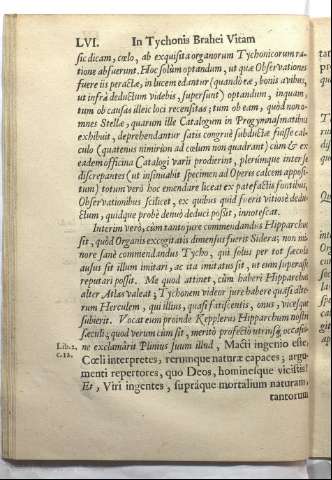 LVI. In Tychonis Brahei Vitam
sic dicam, cœlo, ab exquisita organorum Tychonicorum ra-
tione absuerint. Hoc solùm optandum, ut quæ Observationes
fuere iis peractæ, in lucem edantur (quandò eæ, bonis avibus,
ut infrà deductum videbis, supersunt) optandum, inquam,
tum ob causas illeic loci recensitas; tum ob eam, quòd non o-
mnes Stellæ, quarum ille Catalogum in Progymnasmatibus
exhibuit, deprehendantur satis congruè subductæ fuisse cal-
culo (quatenus nimirùm ad cœlum non quadrant) cùm & ex
eadem officina Catalogi varii prodierint, plerumque inter se
discrepantes (ut insinuabit specimen ad Operis calcem apposi-
tum) totum verò hoc emendare liceat ex patefactis fontibus,
Observationibus scilicet, ex quibus quid fuerit vitiosè dedu-
ctum, quidque probè demùm deduci possit, innotescat.
Interim verò, cùm tanto jure commendandus Hipparchus
sit, quòd Organis excogitatis dimensus fuerit Sidera; non mi-
nore sanè commendandus Tycho, qui solus per tot sæcula
ausus sit illum imitari, ac ita imitatus sit, ut eum superasse
reputari possit. Me quod attinet, cùm haberi Hipparchus
alter Atlas valeat; Tychonem videor jure habere quasi alte-
rum Herculem, qui illius, quasi fatiscentis, onus, vicesque
subierit. Vocat eum proinde Kepplerus Hipparchum nostri
sæculi; quod verum cùm sit, meritò profectò utrasque occasio-
Lib. 2. ne exclamârit Plinius suum illud, Macti ingenio este,
c. 12. Cœli interpretes, rerumque naturæ capaces; argu-
menti repertores, quo Deos, hominesque vicistis!
Et, Viri ingentes, supràque mortalium naturam,
tantorum